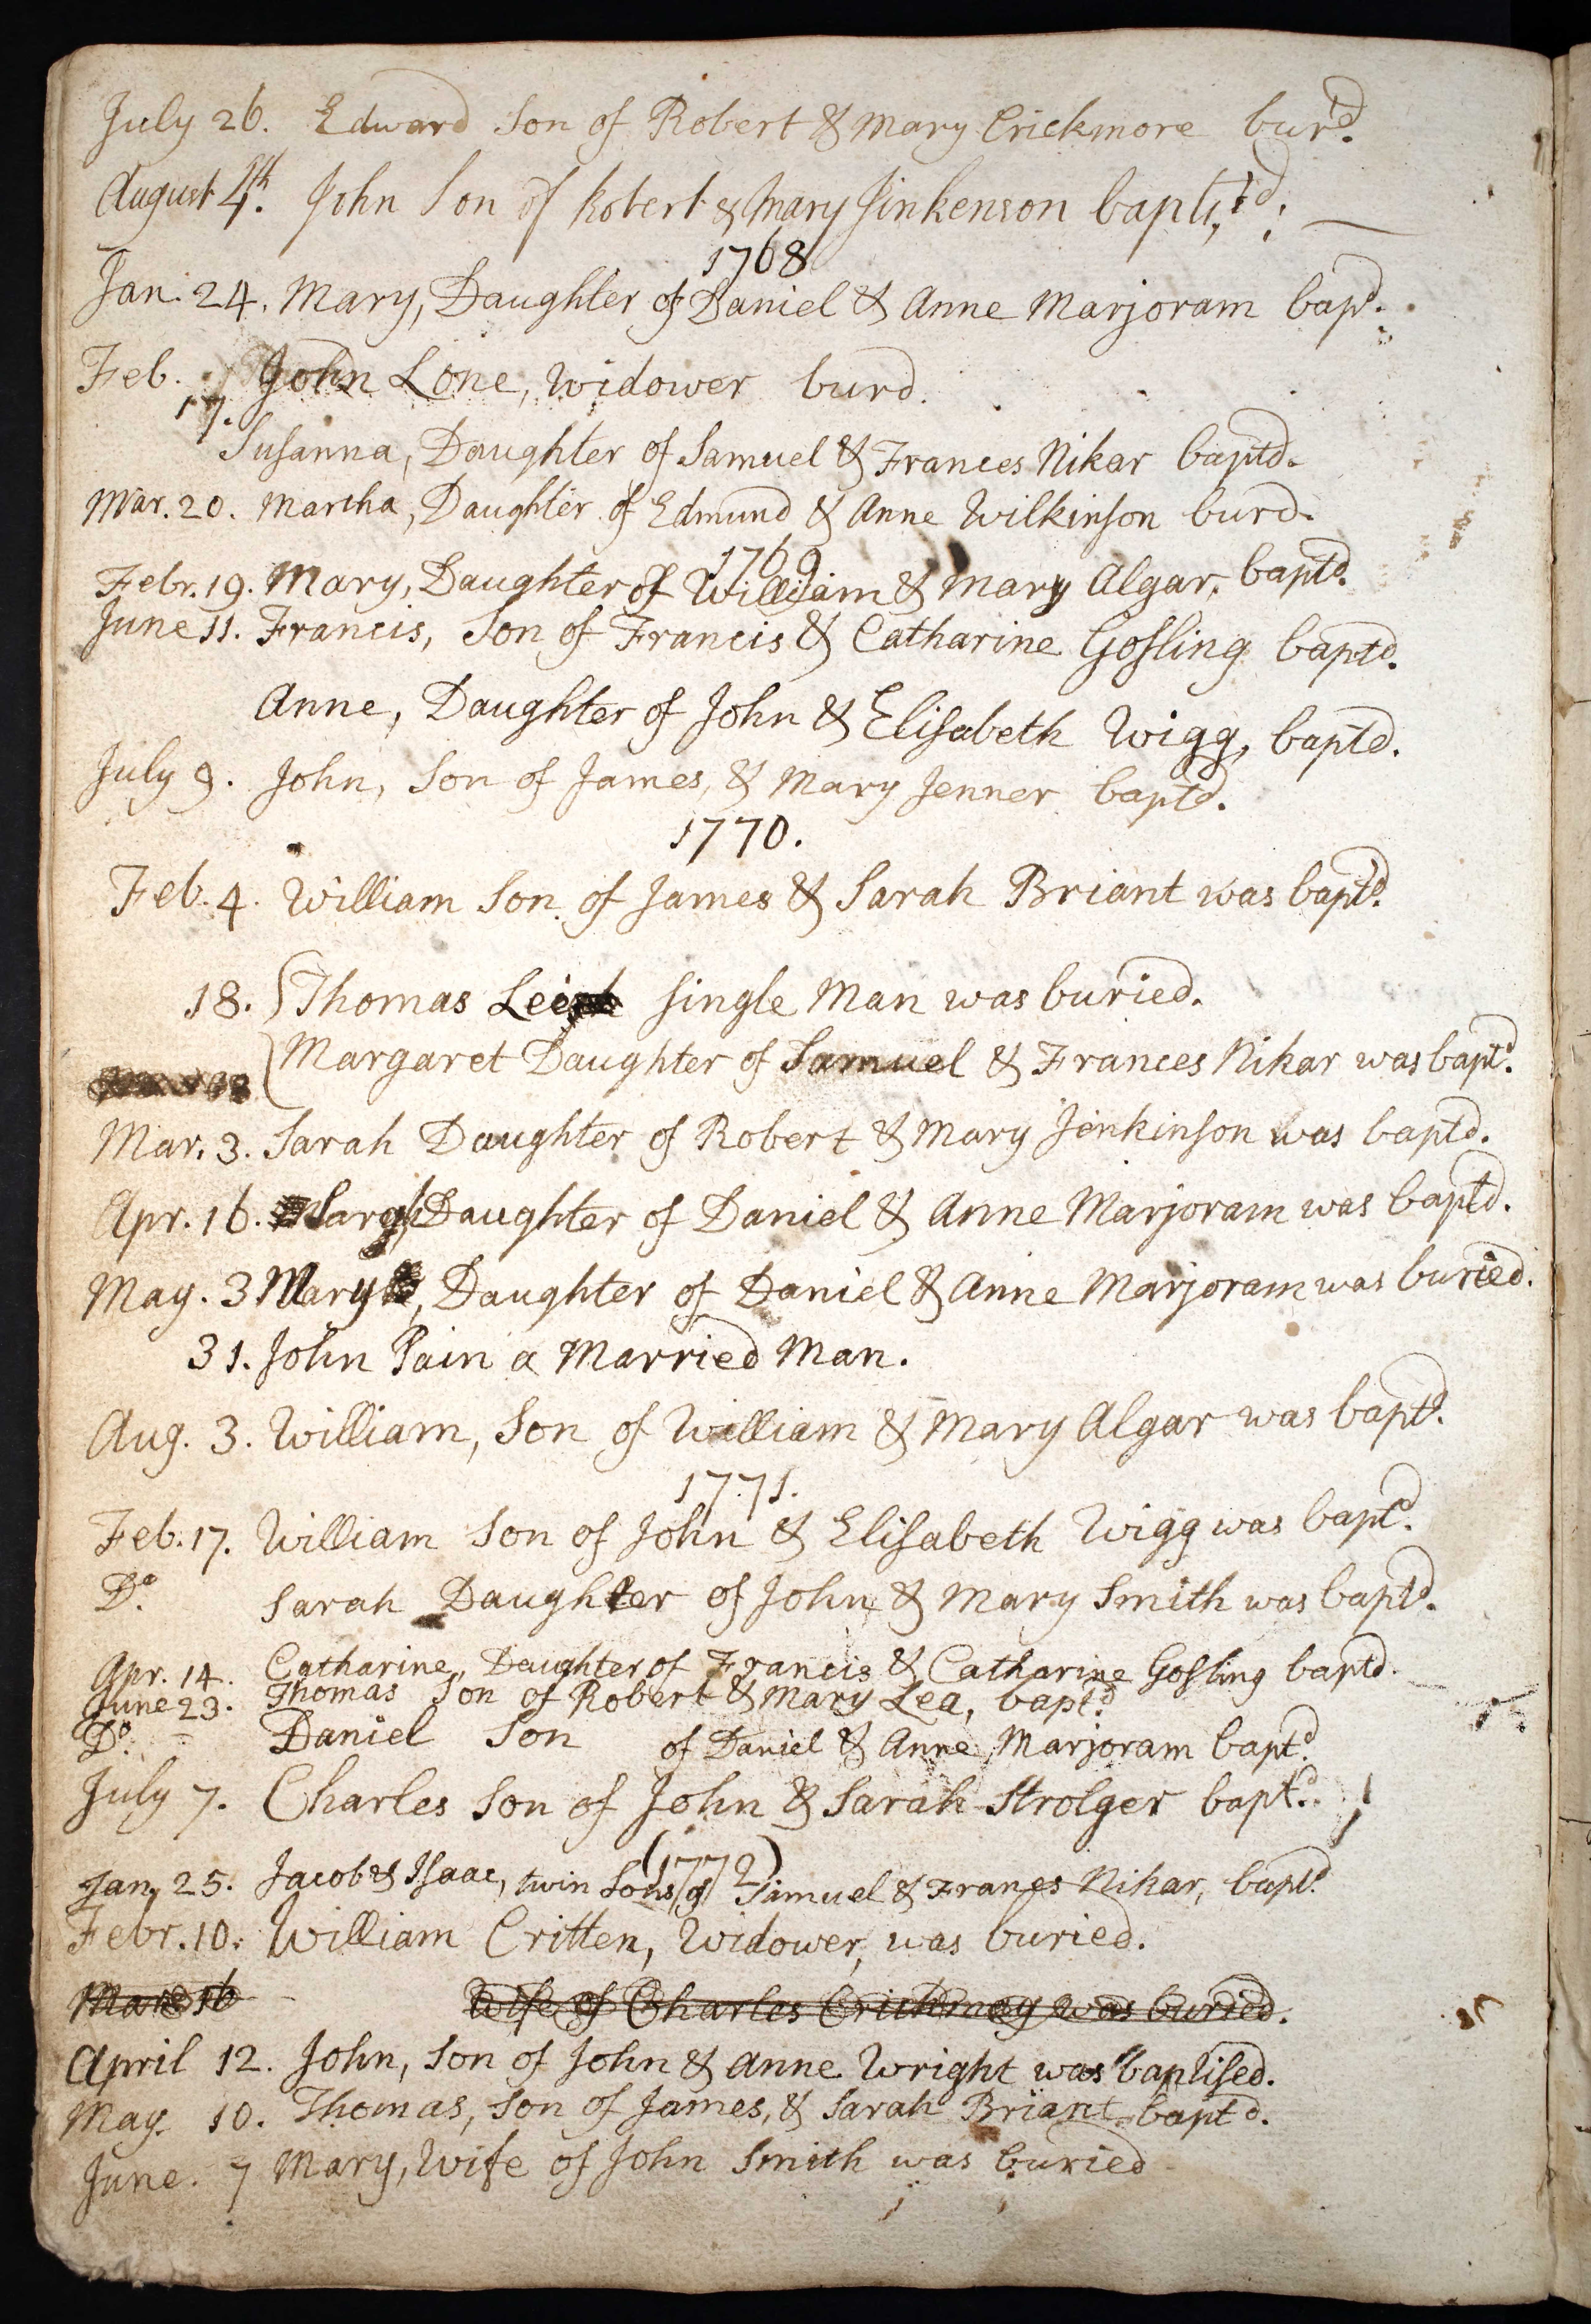 July 26. Edward Son of Robert & Mary Crickmore bur'd.
August 4th. John Son of Robert & Mary Jinkenson bapt'd.
1768
Jan. 24. Mary, Daughter of Daniel & Anne Marjoram bap'd.
Feb. John Lone, Widower burd.
17.
Susanna, Daughter of Samuel & Frances Nikar baptd.
Mar. 20. Martha, Daughter of Edmund & Anne Wilkinson burd.
1769
Febr. 19. Mary, Daughter of William & Mary Algar, baptd.
June 11. Francis, Son of Francis & Catharine Gosling baptd.
Anne, Daughter of John & Elisabeth Wigg, baptd.
July 9. John, Son of James, & Mary Jenner baptd.
1770.
Feb. 4. William Son of James & Sarah Briant was bapt'd.
18. Thomas single Man was buried.
Margaret Daughter of Samuel & Frances Nikar was bapt'd.
Mar. 3. Sarah Daughter of Robert & Mary Jenkinson was baptd.
Apr. 16. Sarah Daughter of Daniel & Anne Marjoram was baptd.
May. 3 Mary, Daughter of Daniel & Anne Marjoram was buried.
31. John Pain a Married Man.
Aug. 3. William, Son of William & Mary Algar was bapt'd.
1771.
Feb. 17. William Son of John & Elisabeth Wigg was bapt'd.
Do. Sarah Daughter of John & Mary Smith was bapt'd.
Apr. 14. Catharine, Daughter of Francis & Catharine Gosling baptd.
June 23. Thomas Son of Robert & Mary Lea, bapt'd
Do. Daniel Son of Daniel & Anne Marjoram bapt'd.
July 7. Charles Son of John & Sarah Strolger bapt'd.
(1772)
Jan. 25. Jacob & Isaac, twin Sons of Samuel & Franes Nikar, bapt'd
Febr. 10. William Critten, Widower, was buried.
Mar 16 Wife of Charles was buried.
April 12. John, Son of John & Anne Wright was baptised.
May. 10. Thomas, Son of James, & Sarah Briant bapt'd.
June. 7 Mary, Wife of John Smith was buried